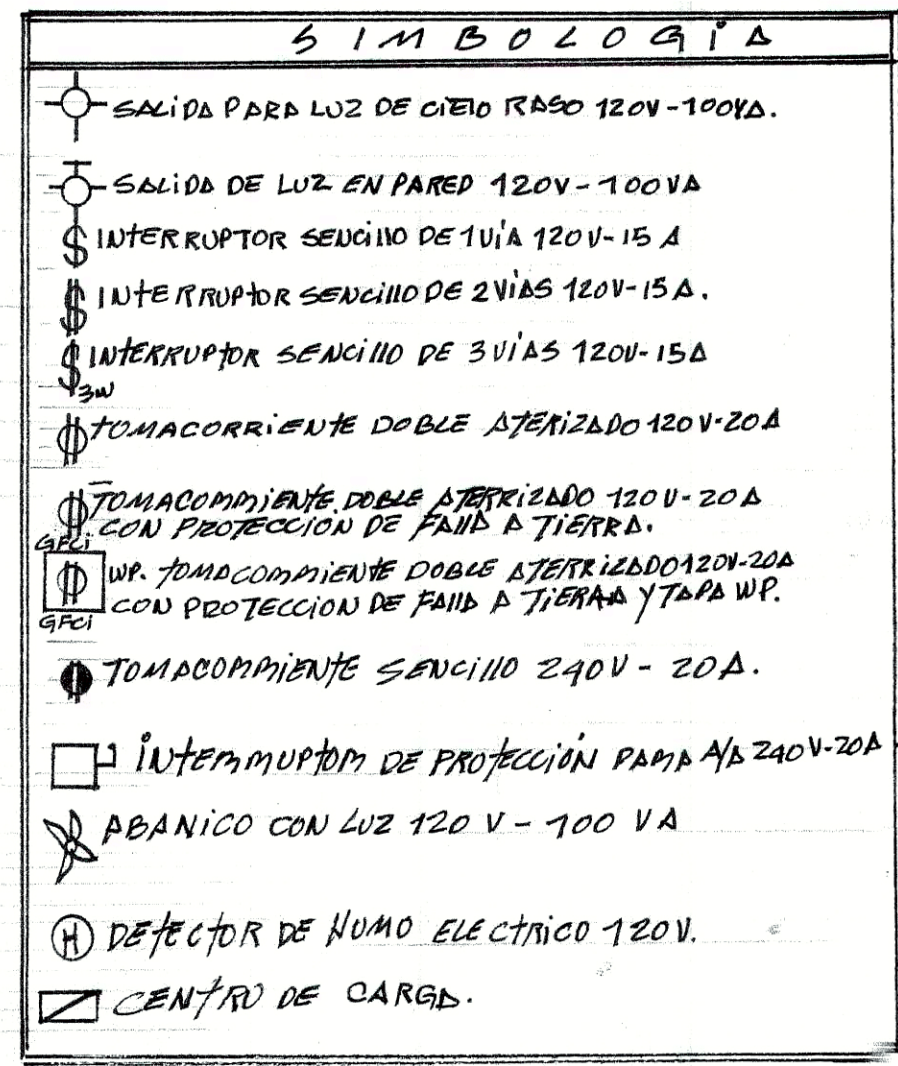 SIMBOLOGÍA
SALIDA PARA LUZ DE CIELO RASO 120V-100VA.
SALIDA DE LUZ EN PARED 120V-100VA
INTERRUPTOR SENCILLO DE 1 VÍA 120V-15A
INTERRUPTOR SENCILLO DE 2 VÍAS 120V-15A.
INTERRUPTOR SENCILLO DE 3 VÍAS 120V-15A
3W
TOMACORRIENTE DOBLE ATERIZADO 120V-20A
TOMACORRIENTE DOBLE ATERRIZADO 120V-20A
CON PROTECCION DE FALLA A TIERRA.
GFCi
WP. TOMACORRIENTE DOBLE ATERRIZADO 120V-20A
CON PROTECCION DE FALLA A TIERRA Y TAPA WP.
GFCi
TOMACORRIENTE SENCILLO 240V-20A.
INTERRUPTOR DE PROTECCIÓN PARA A/A 240V-20A
ABANICO CON LUZ 120V-100VA
H DETECTOR DE HUMO ELECTRICO 120V.
CENTRO DE CARGA.